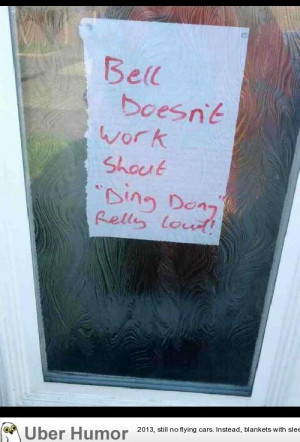 Bell
Doesn't
work
Shout
"Ding Dong"
Relly loud!
Uber Humor
2013, still no flying cars. Instead, blankets with slee